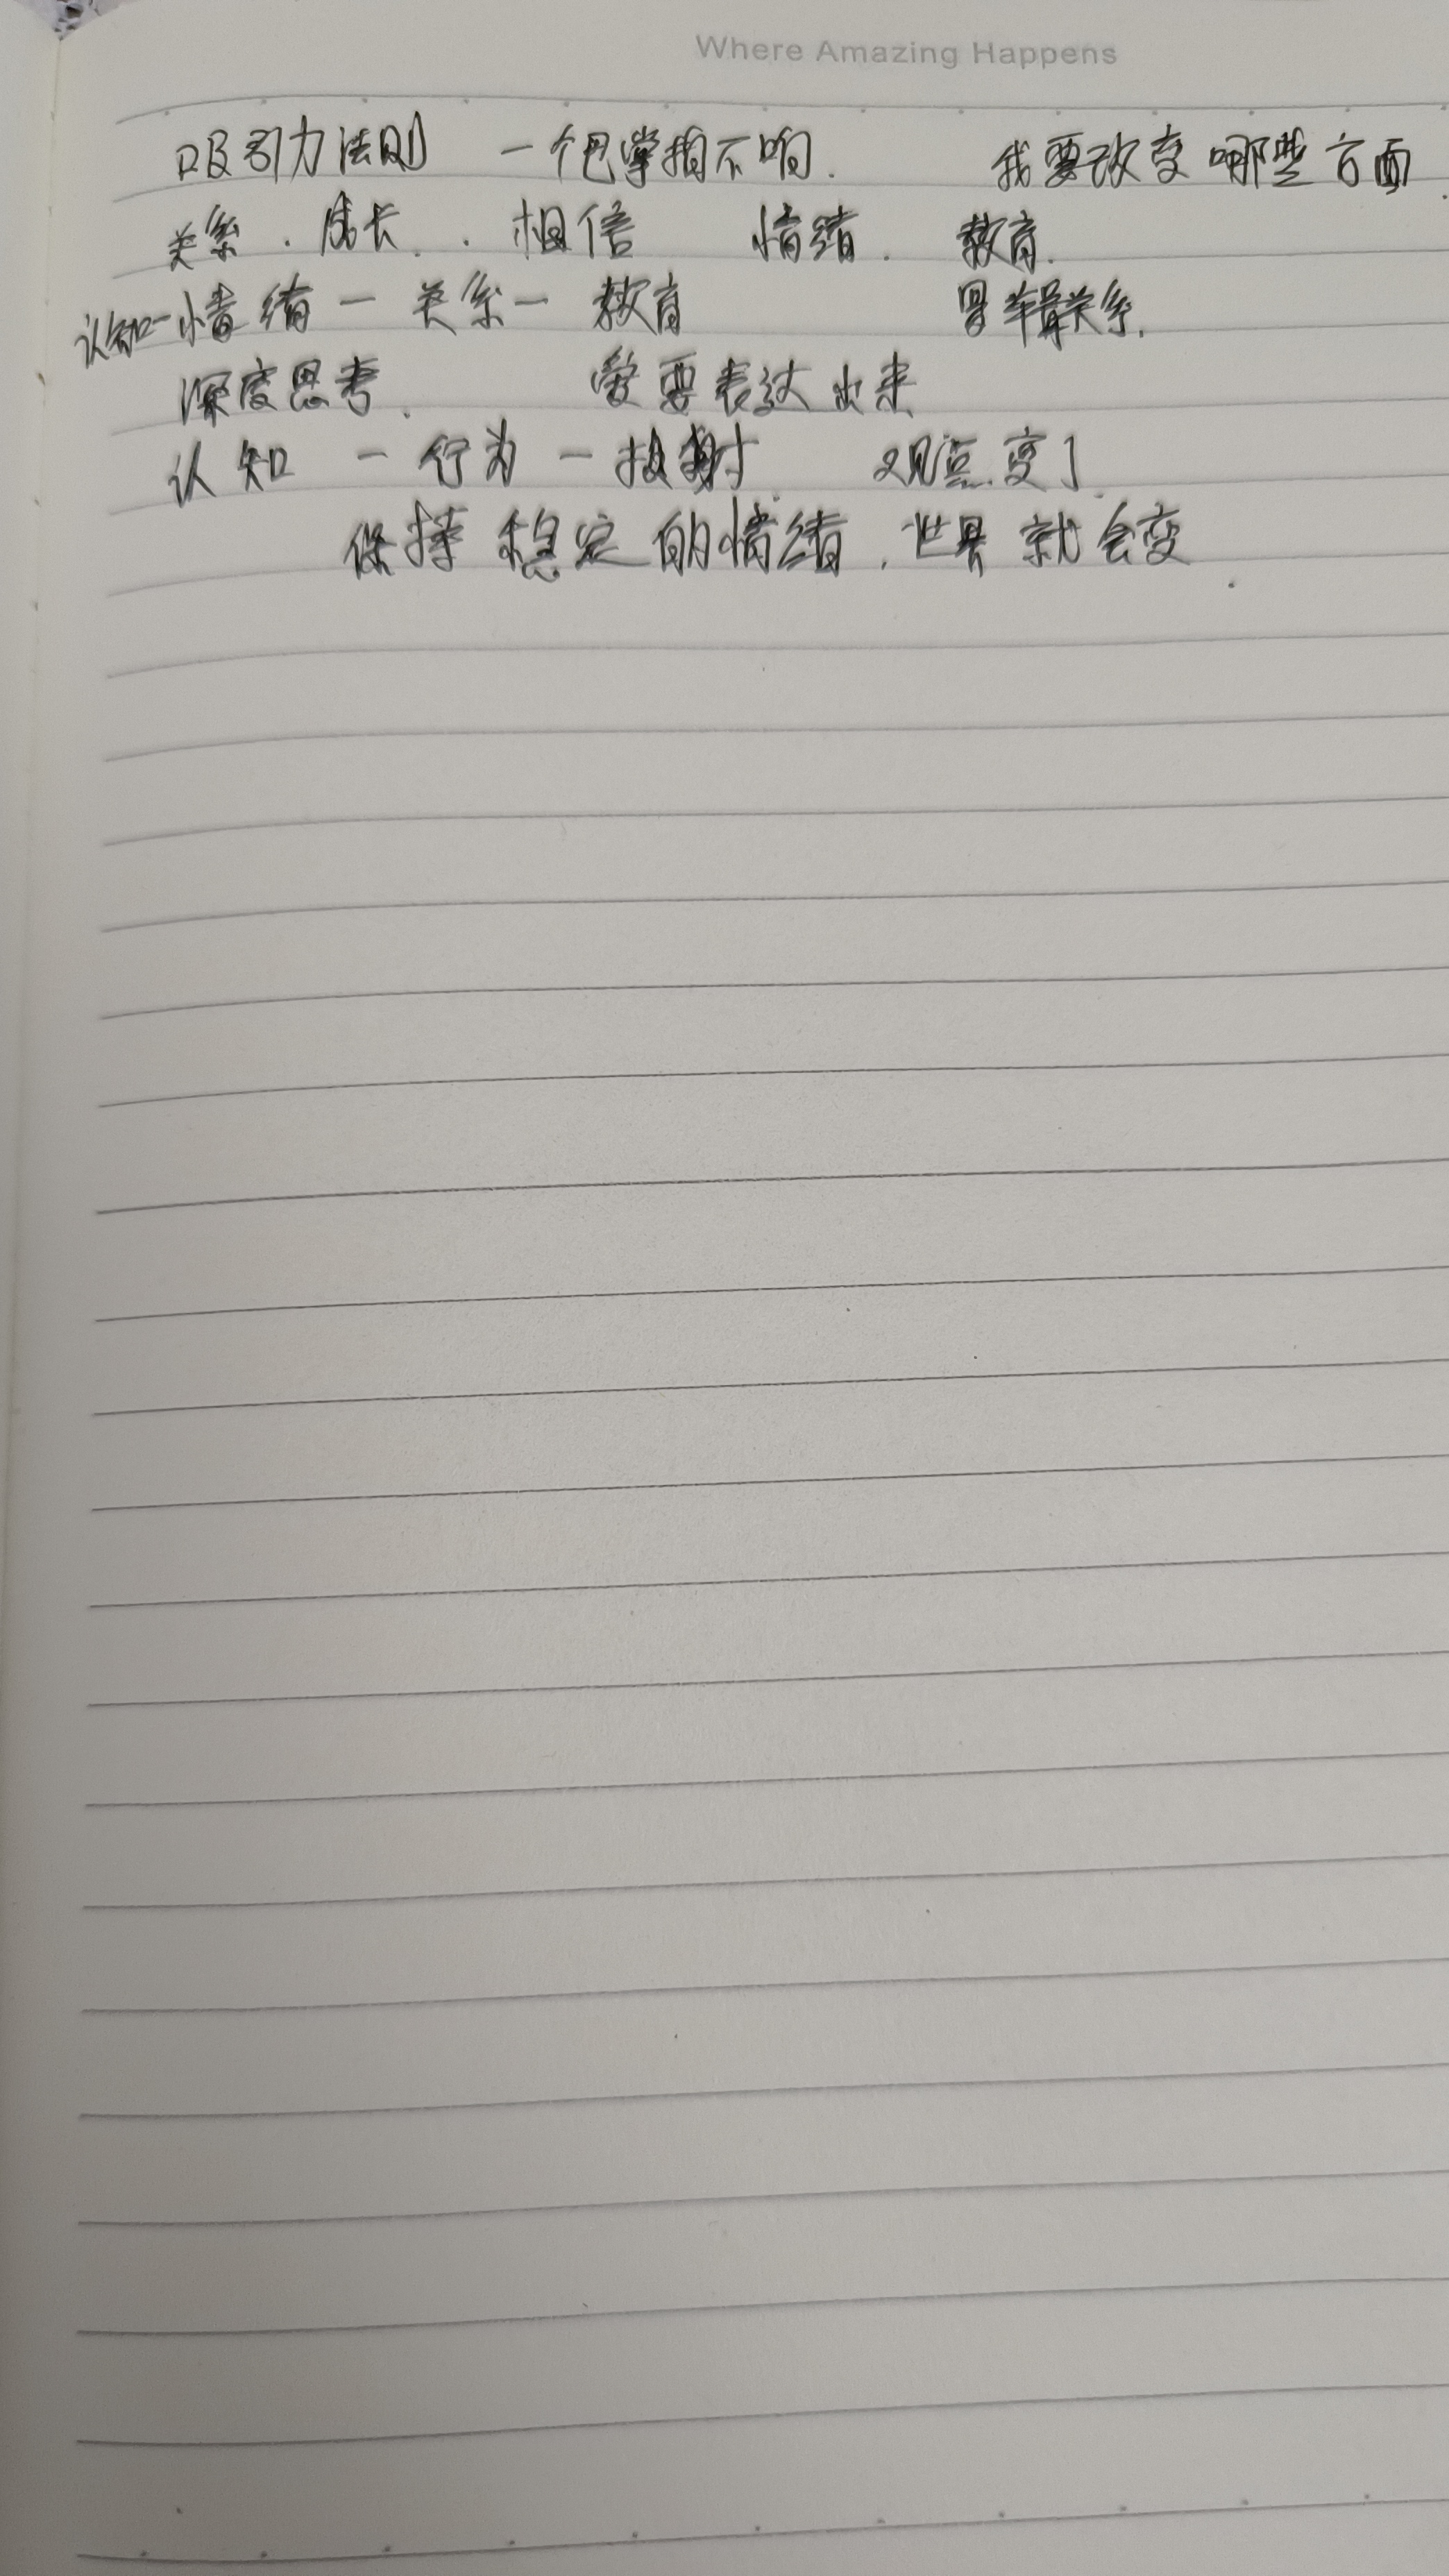 Where Amazing Happens
吸引力法则 一个巴掌拍不响. 我要改变哪些方面.
关系. 成长. 相信 情绪. 教育.
认知-情绪-关系-教育 关系.
深度思考. 爱要表达出来
认知-行为-投射. 观点变了.
保持稳定的情绪.世界就会变.